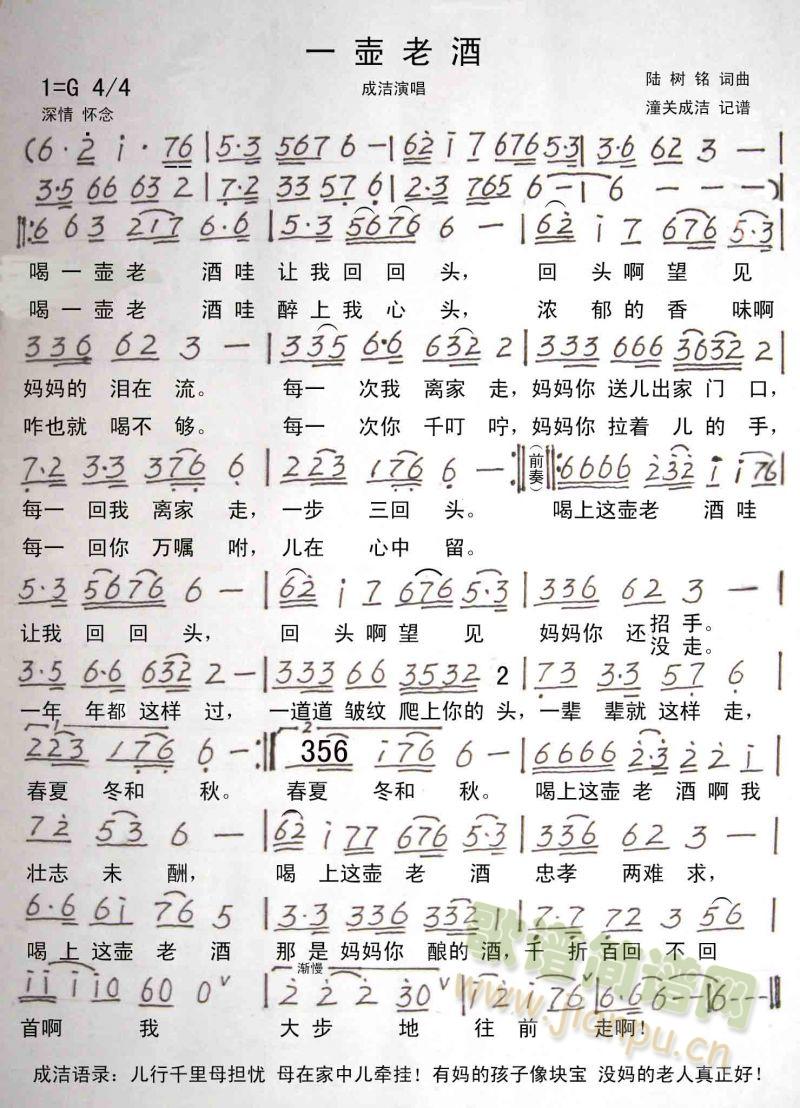 一壶老酒
1=G 4/4
成洁演唱
陆树铭 词曲
深情 怀念
潼关成洁 记谱
(6·2 i·76|5·3 5676 6-|62 i7 676 5·3|3·6 62 3-|
3·5 66 63 2|7·2 33 57 6|2·3 765 6-|6--)|
‖:6 63 217 6·6|5·3 5676 6-|62 i7 676 5·3|
喝一壶老 酒哇 让我回回头， 回头啊望见
喝一壶老 酒哇 醉上我心头， 浓郁的香味啊
336 62 3-|335 6·6 632 2|333 666 3632 2|
妈妈的 泪在流。 每一 次我 离家 走，妈妈你 送儿出家 门口，
咋也就 喝不够。 每一 次你 千叮 咛，妈妈你 拉着 儿的手，
7·2 33 376 6|223 176 6-:‖(前奏)‖:6666 232 i i76|
每一 回我 离家 走， 一步 三回头。 喝上这壶老 酒哇
每一 回你 万嘱 咐，儿在 心中留。
5·3 5676 6-|62 i7 676 5·3|336 62 3-|
让我 回回头， 回头啊望见 妈妈你 还招手。
没走。
3·5 6·6 632 2-|333 66 3532 2|73 3·3 57 6|
一年 年都 这样 过， 一道道 皱纹 爬上你的 头，一辈 辈就 这样 走，
1 2
223 176 6-:‖356 i76 6-|6666 2·3 22 i|
春夏 冬和 秋。 春夏 冬和 秋。 喝上这壶 老 酒啊我
72 5·3 6-|62 i77 676 5·3|336 62 3-|
壮志 未酬， 喝上这壶 老酒 忠孝 两难求，
6·6 6i 76 5|3·3 33 52 3|7·7 72 3 56|
喝上 这壶 老酒 那是妈妈你 酿的酒，千折百回 不回
渐慢
ii i i0 60 0∨|2 2 2 30∨|2 2i 76∨|6·6 6-|6---‖
首啊 我 大步 地 往前 走啊！
成洁语录：儿行千里母担忧 母在家中儿牵挂！有妈的孩子像块宝 没妈的老人真正好！
歌谱简谱网
www.jianpu.cn